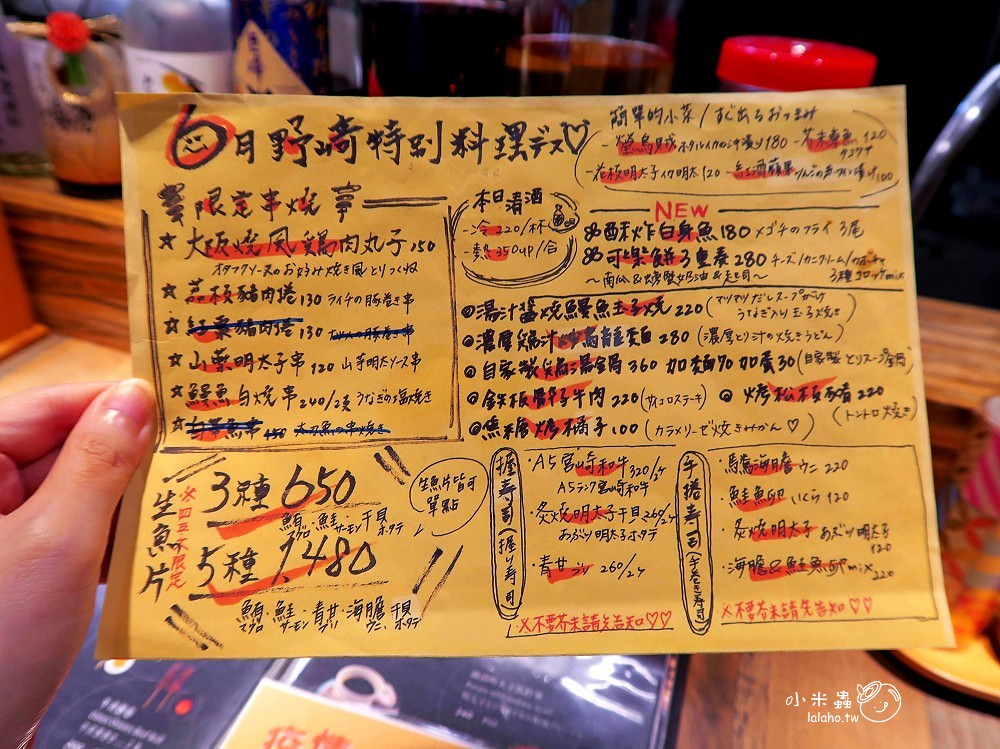 6月野崎特別料理デス♡
簡單的小菜/すぐ出るおつまみ
-螢烏賊 ホタルイカの汁漬け180 -芥末章魚120
タコワサ
-花枝明太子 イカ明太120 -台酒蘋果 100
限定串燒
☆大阪燒風鷄肉丸子150
オタフクソースのお好み焼き風とりつくね
☆荔枝豬肉捲130 ライチの豚巻き串
☆紅棗豬肉捲130
☆山藥明太子串120 山芋明太ソース串
☆鰻魚白燒串240/2支 うなぎの塩焼き
☆白帶魚串150 太刀魚の串焼き
本日清酒
-冷220/杯
-熱350up/合
NEW
酥炸白身魚180 メゴチのフライ 3尾
可樂餅3重奏280 チーズ/カニクリーム/カボチャ
3種コロッケmix
~南瓜&螃蟹奶油&起司~
◎湯汁醬燒鰻魚玉子燒220
うなぎ入り玉子焼き)
◎濃厚鷄汁炒烏龍麵280(濃厚とり汁の焼きうどん)
◎自家製鷄湯湯鍋360 加麵70 加蛋30(自家製とりスープ鍋)
◎鉄板骰子牛肉220(サイコロステーキ) ◎烤松板豬220
(トントロ焼き)
◎焦糖烤橘子100(カラメリーゼ焼きみかん♡)
生魚片
※四五六限定
3種650
鮪・鮭・干貝
マグロ サーモン ホタテ
生魚片皆可
單點
5種1,480
鮪・鮭・青甘・海膽・干貝
マグロ サーモン ブリ ウニ ホタテ
握寿司(握り寿司)
・A5宮崎和牛320/2ケ
A5ランク宮崎和牛
・炙燒明太子干貝260/2ケ
あぶり明太子ホタテ
・青甘ブリ260/2ケ
※不要芥末請先告知♡♡
手捲寿司(手巻き寿司)
・馬糞海膽ウニ220
・鮭魚卵いくら120
・炙燒明太子あぶり明太子
120
・海膽&鮭魚卵mix220
※不要芥末請先告知♡♡
疫情
小米蟲
lalaho.tw